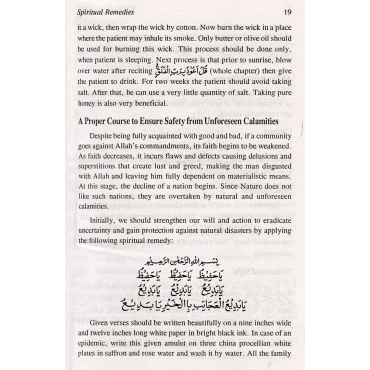 Spiritual Remedies 19
it a wick, then wrap the wick by cotton. Now burn the wick in a place
where the patient may inhale its smoke. Only butter or olive oil should
be used for burning this wick. This process should be done only,
when patient is sleeping. Next process is that prior to sunrise, blow
over water after reciting قُلْ اَعُوْذُ بِرَبِّ الْفَلَقِ (whole chapter) then give
the patient to drink. For two weeks the patient should avoid taking
salt. After that, he can use a very little quantity of salt. Taking pure
honey is also very beneficial.
A Proper Course to Ensure Safety from Unforeseen Calamities
Despite being fully acquainted with good and bad, if a community
goes against Allah's commandments, its faith begins to be weakened.
As faith decreases, it incurs flaws and defects causing delusions and
superstitions that create lust and greed, making the man disgusted
with Allah and leaving him fully dependent on materialistic means.
At this stage, the decline of a nation begins. Since Nature does not
like such nations, they are overtaken by natural and unforeseen
calamities.
Initially, we should strengthen our will and action to eradicate
uncertainty and gain protection against natural disasters by applying
the following spiritual remedy:
بِسْمِ اللهِ الرَّحْمٰنِ الرَّحِيْمِ
يَاحَفِيْظُ يَاحَفِيْظُ يَاحَفِيْظُ
يَابَدِيْعُ يَابَدِيْعُ يَابَدِيْعُ
يَابَدِيْعُ الْعَجَائِبِ بِالْخَيْرِ يَا بَدِيْعُ
Given verses should be written beautifully on a nine inches wide
and twelve inches white paper in bright black ink. In case of an
epidemic, write this given amulet on three china procellian white
plates in saffron and rose water and wash it by water. All the family